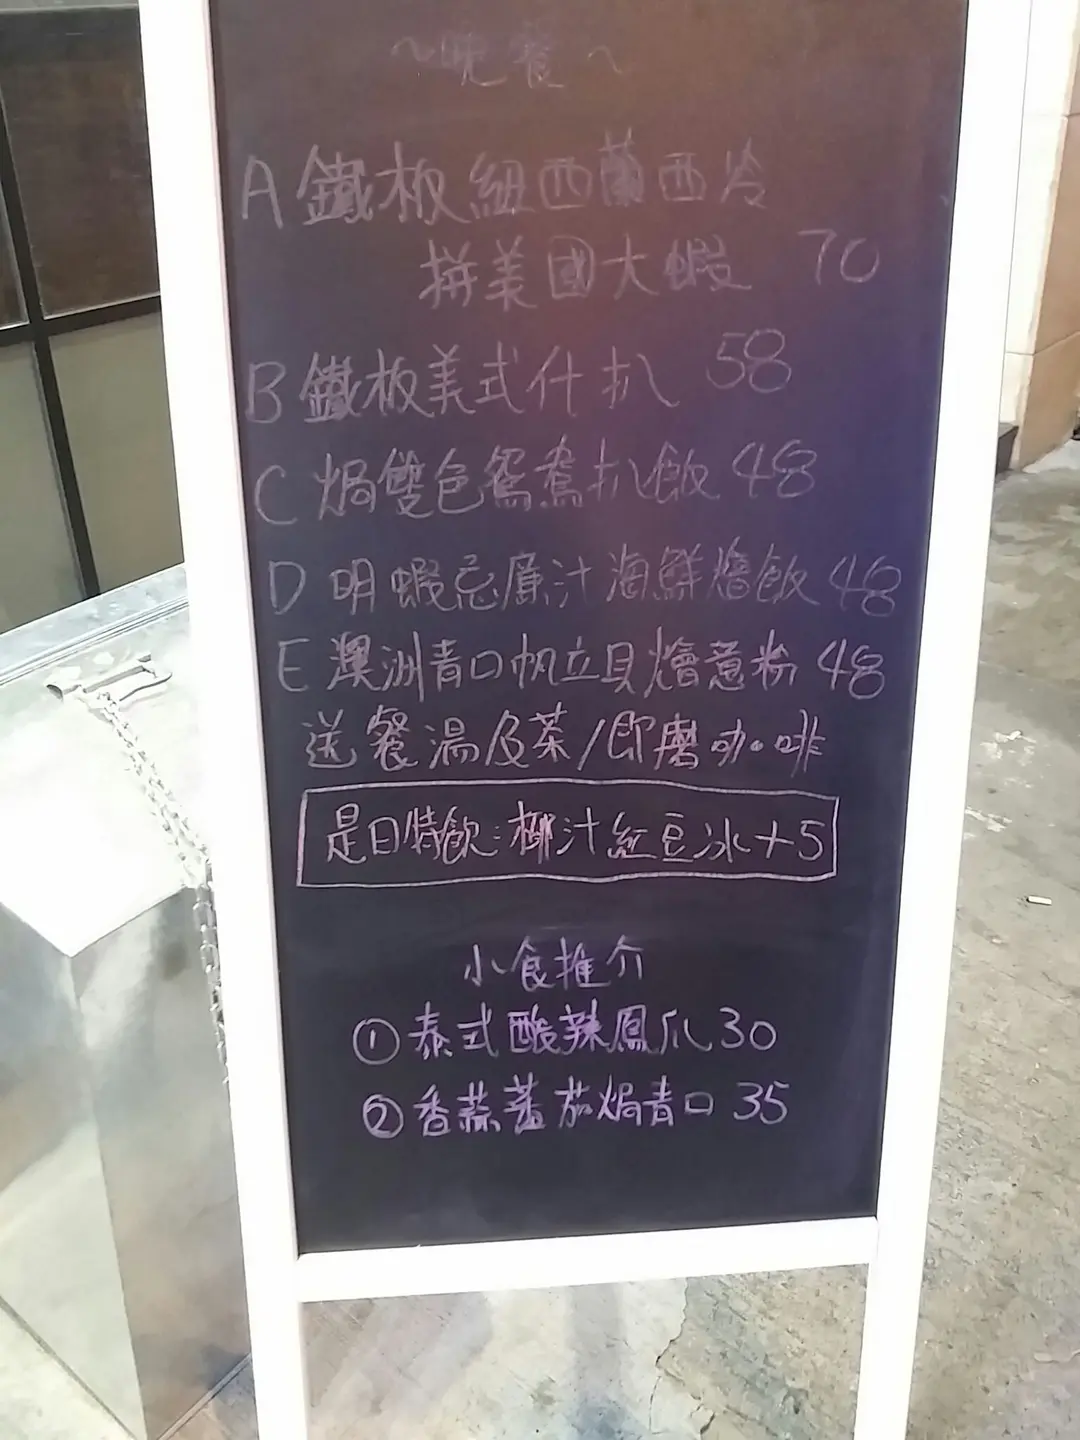 ~晚餐~
A 鐵板紐西蘭西冷
拼美國大蝦 70
B 鐵板美式什扒 58
C 焗雙色鴛鴦扒飯 48
D 明蝦忌廉汁海鮮燴飯 48
E 澳洲青口帆立貝燴意粉 48
送餐湯及茶/即磨咖啡
是日特飲:椰汁紅豆冰+5
小食推介
①泰式酸辣鳳爪30
②香蒜蕃茄焗青口 35